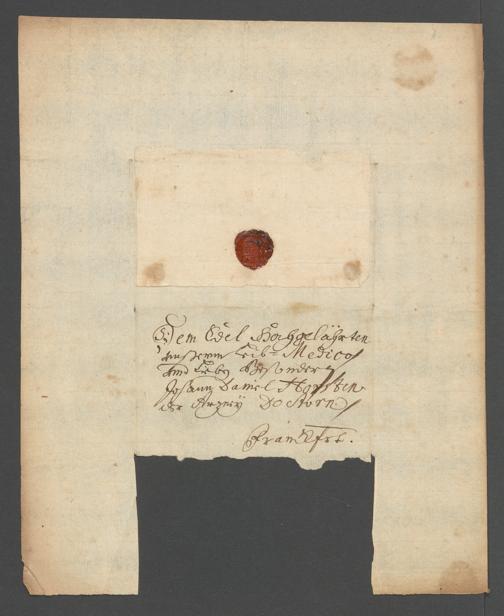 Dem Edel Hochgelährten
unserm Leib- Medico
und Lieben Besonder
Johann Daniel Horsten
der Artzney Doctorn
Franckfrt.